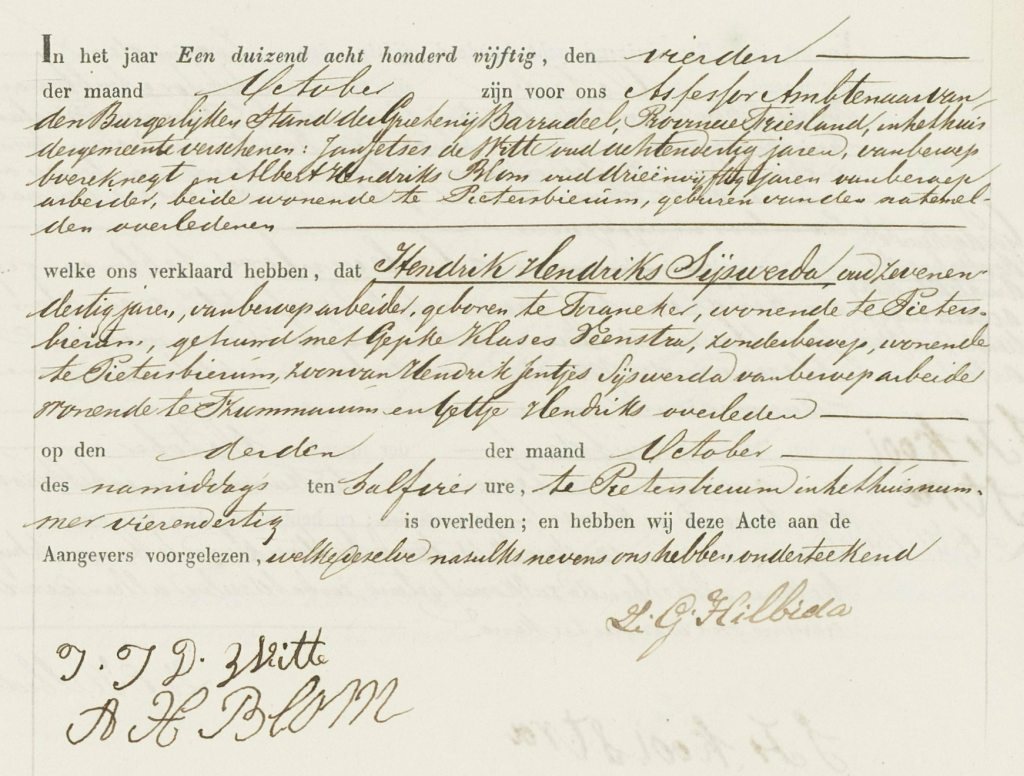 In het jaar Een duizend acht honderd vijftig, den vierden
der maand October zijn voor ons Assessor Ambtenaar van
den Burgerlijken Stand der Grietenij Barradeel, Provincie Friesland, in het huis
der gemeente verschenen: Jan Jetses de Witte oud achtendertig jaren, van beroep
boereknegt en Albert Hendriks Blom oud drieënvijftig jaren van beroep
arbeider, beide wonende te Pietersbierum, geburen van den natemel-
den overledenen
welke ons verklaard hebben, dat Hendrik Hendriks Sijswerda, oud zevenen-
dertig jaren, van beroep arbeider, geboren te Franeker, wonende te Pieters-
bierum, getuwd met Gepke Klases Veenstra, zonder beroep, wonende
te Pietersbierum, zoon van Hendrik Jentjes Sijswerda van beroep arbeider
wonende te Tzummarum en Hendriks overleden
op den derden der maand October
des namiddags ten half vier ure, te Pietersbierum in het huis num-
mer vierendertig is overleden; en hebben wij deze Acte aan de
Aangevers voorgelezen, welke dezelve nevens ons hebben onderteekend
G. Hilbida
J. J D. Witte
A H Blom